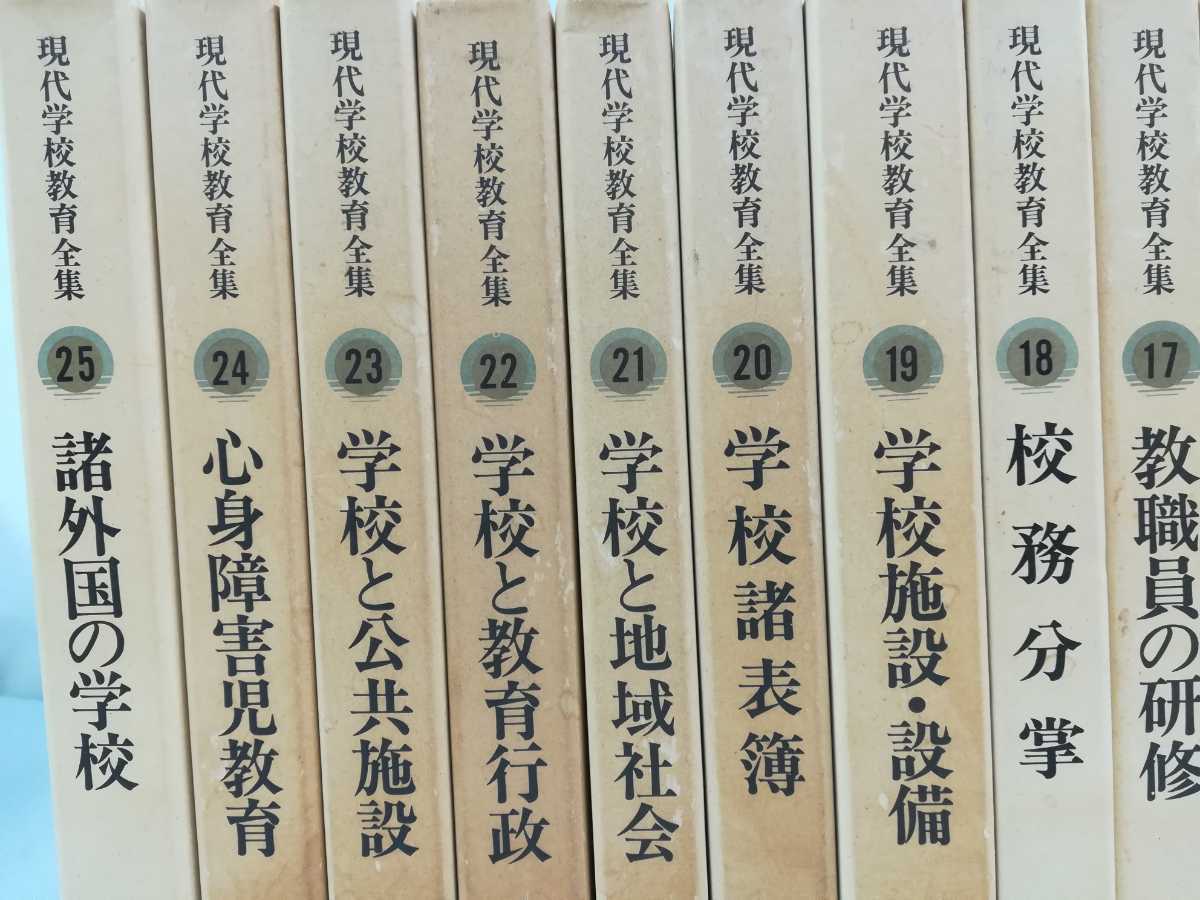 現代学校教育全集
25
諸外国の学校
現代学校教育全集
24
心身障害児教育
現代学校教育全集
23
学校と公共施設
現代学校教育全集
22
学校と教育行政
現代学校教育全集
21
学校と地域社会
現代学校教育全集
20
学校諸表簿
現代学校教育全集
19
学校施設・設備
現代学校教育全集
18
校務分掌
現代学校教育全集
17
教職員の研修